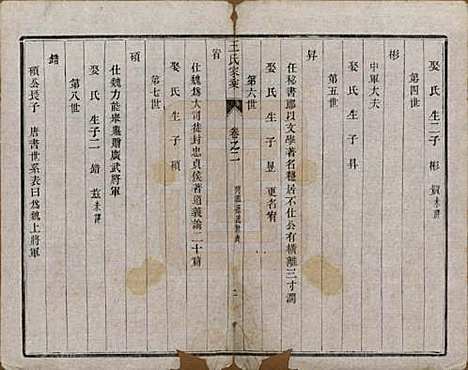 娶 氏 生子二 彬
第四世
彬
中軍大夫
第五世
娶 氏 生子 昇
昇
任秘書郎以文學著名隱居不仕公有橫離三寸濶
娶 氏 生子 昱 更名宥
第六世
王氏家乘
卷之二
宥
仕魏爲大司徒封忠貞侯著道義論二十篇
娶 氏 生子 碩
第七世
碩
仕魏力能舉鼎贈廣武將軍
娶 氏 生子二 錯 茲 未詳
第八世
錯
碩公長子 唐書世系表曰爲魏上將軍